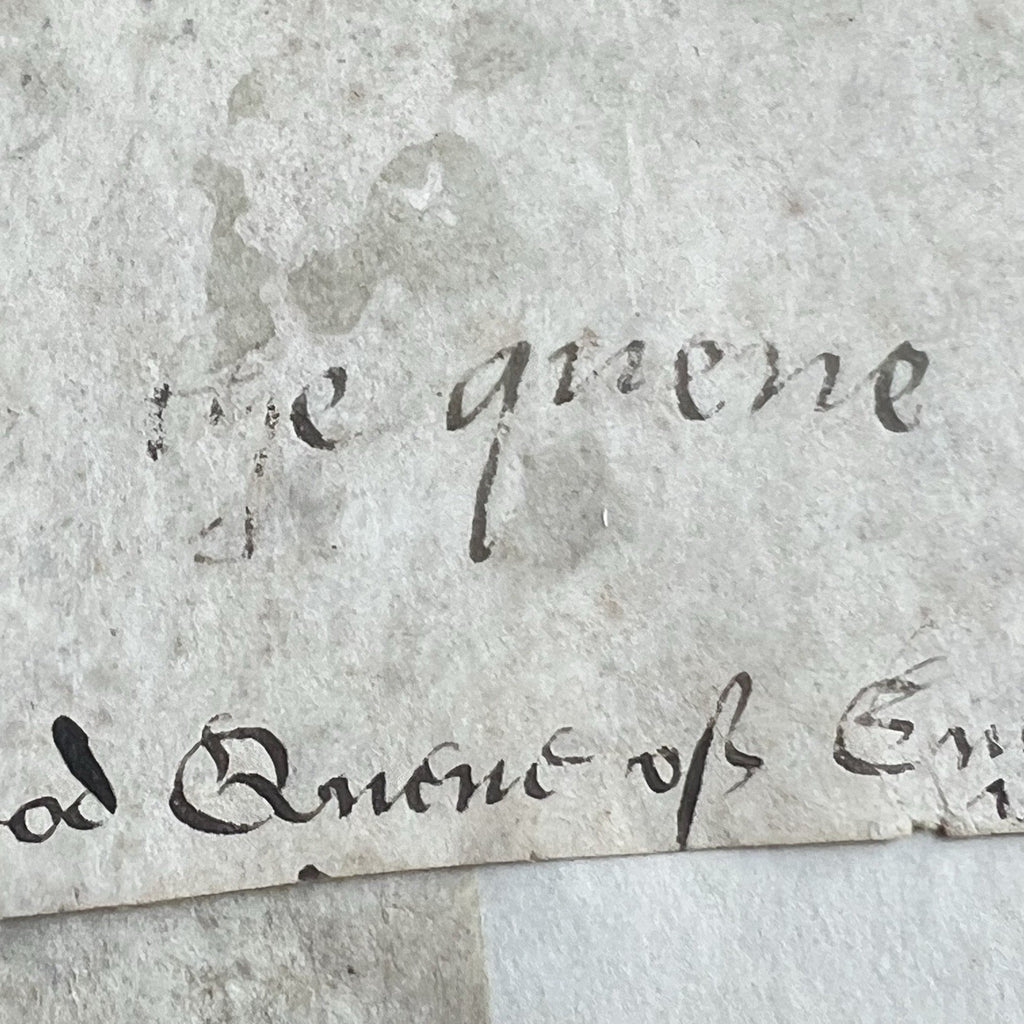 the quene
od Quene off En